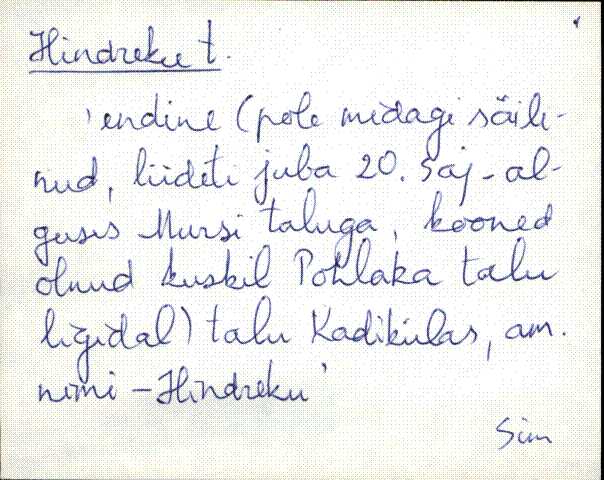 Hindreku t.
'endine (pole midagi säili-
nud, liideti juba 20. saj-al-
guses Mursi taluga, hooned
olnud kuskil Pohlaka talu
ligidal) talu Kadikülas, am.
nimi – Hindreku'
Sim